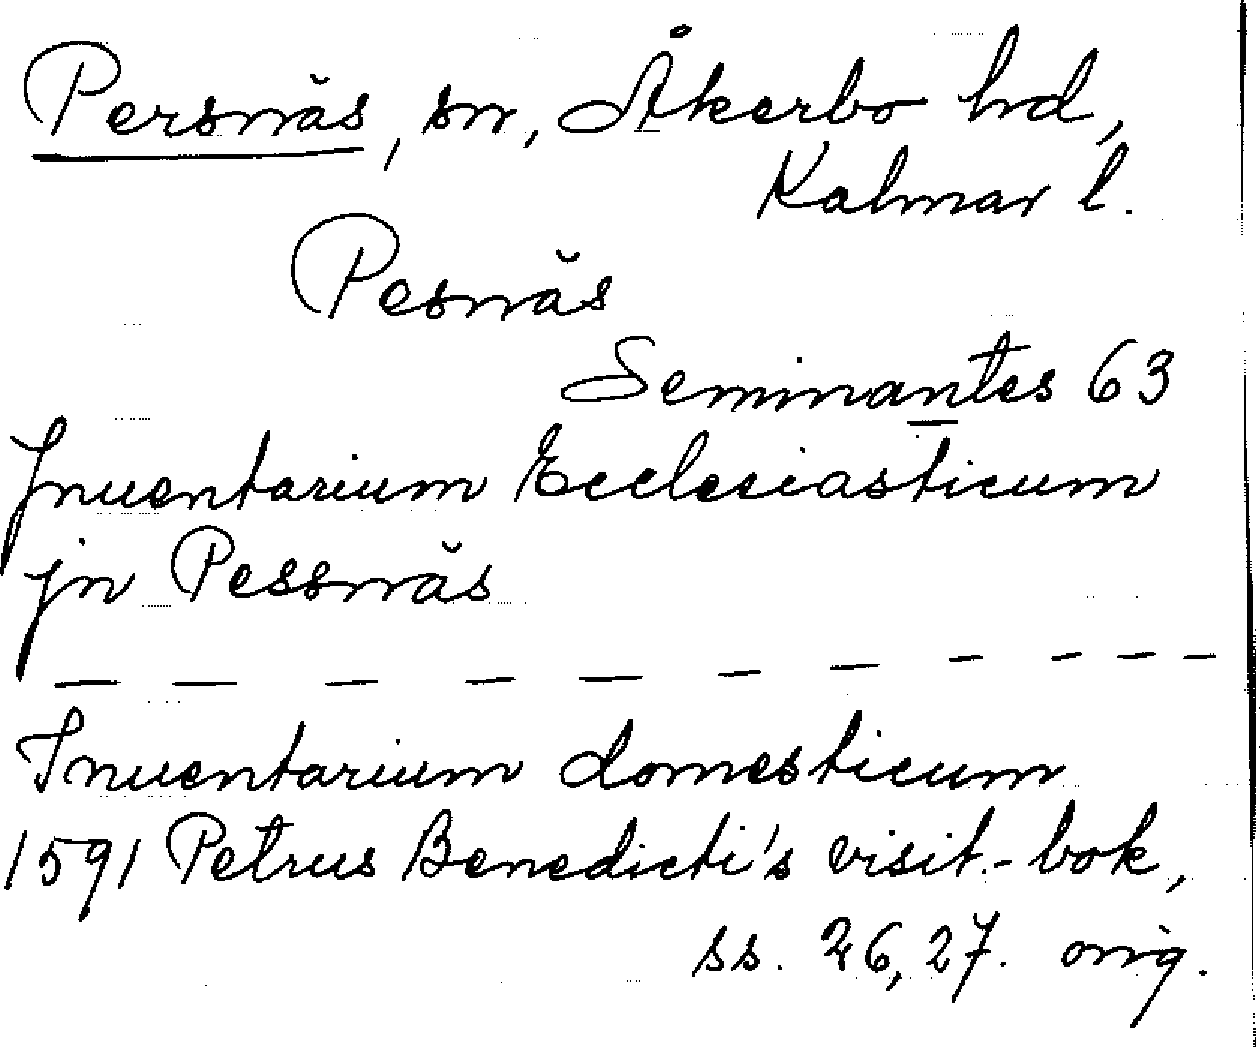 Persnäs, sn, Åkerbo hd,
Kalmar l.
Pesnäs
Seminantes 63
Jnuentarium Ecclesiasticum
jn Pessnäs
— — — — — — — — — —
Inuentarium domesticum
1591 Petrus Benedicti's visit.-bok,
ss. 26, 27. orig.